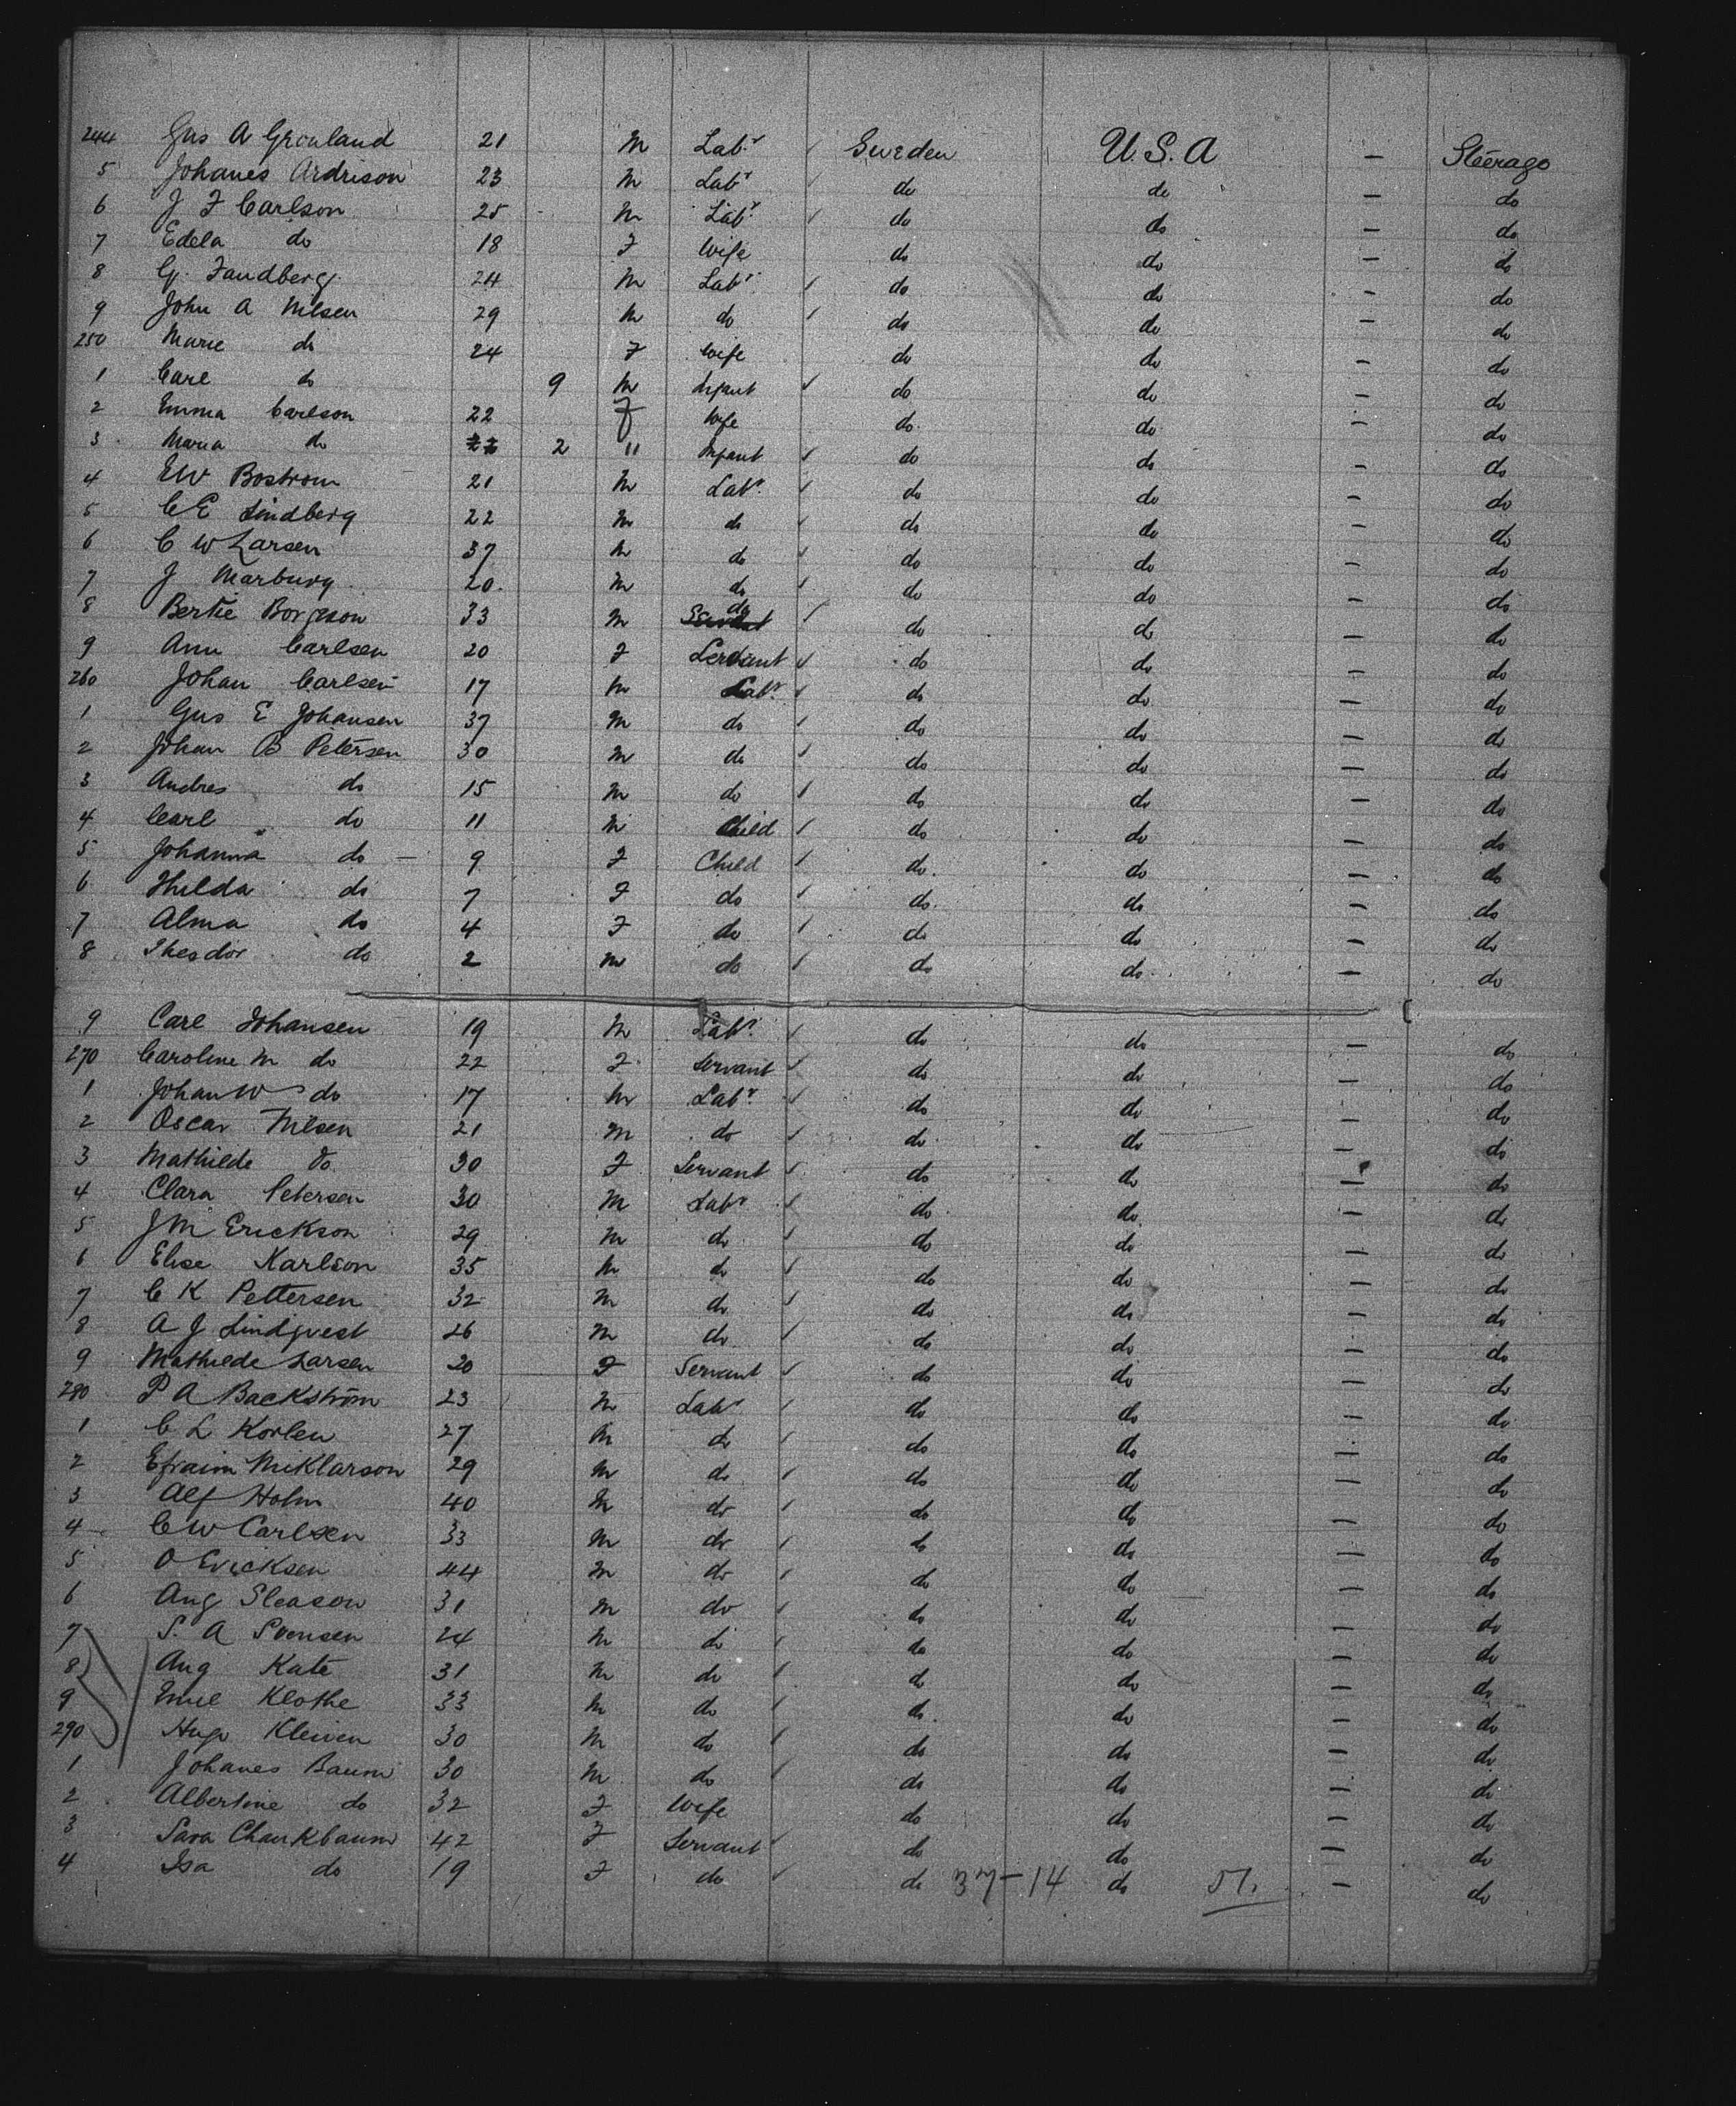 244 Gus A Gronland 21 M Labr Sweden U.S.A — Steerage
5 Johanes Ardrison 23 M Labr do do — do
6 J F Carlson 25 M Labr do do — do
7 Edela do 18 F Wife do do — do
8 G. Sandberg 24 M Labr do do — do
9 John A Nilsen 29 M do do do — do
250 Marie do 24 F Wife do do — do
1 Carl do 9 M Infant do do — do
2 Emma Carlson 22 F Wife do do — do
3 Maria do 2 " Infant do do — do
4 EW Bostrom 21 M Labr do do — do
5 C E Lindberg 22 M do do do — do
6 C W Larsen 37 M do do do — do
7 J Marburg 20 M do do do — do
8 Bertie Borgeson 33 M do do do — do
9 Ann Carlsen 20 F Servant do do — do
260 Johan Carlsen 17 M Labr do do — do
1 Gus E Johansen 37 M do do do — do
2 Johan B Petersen 30 M do do do — do
3 Andres do 15 M do do do — do
4 Carl do 11 M Child do do — do
5 Johanna do — 9 F Child do do — do
6 Hulda do 7 F do do do — do
7 Alma do 4 F do do do — do
8 Theodor do 2 M do do do — do
9 Carl Johansen 19 M Labr do do — do
270 Caroline M do 22 F Servant do do — do
1 Johan W do 17 M Labr do do — do
2 Oscar Nilsen 21 M do do do — do
3 Mathilde do 30 F Servant do do — do
4 Clara Petersen 30 M Labr do do — do
5 J M Erickson 29 M do do do — do
6 Elise Karlson 35 M do do do — do
7 C K Pettersen 32 M do do do — do
8 A J Lindqvest 26 M do do do — do
9 Mathilde Larsen 20 F Servant do do — do
280 P A Backström 23 M Labr do do — do
1 C L Korlen 27 M do do do — do
2 Efraim Miklarson 29 M do do do — do
3 Alf Holm 40 M do do do — do
4 C W Carlsen 33 M do do do — do
5 O Ericksen 44 M do do do — do
6 Aug Sleason 31 M do do do — do
7 S. A Svensen 24 M do do do — do
8 Aug Kate 31 M do do do — do
9 Emil Klothe 33 M do do do — do
290 Hugo Kleiven 30 M do do do — do
1 Johanes Baum 30 M do do do — do
2 Albertine do 32 F Wife do do — do
3 Sara Chankbaum 42 F Servant do do — do
4 Isa do 19 F do do 37-14 do 51. — do